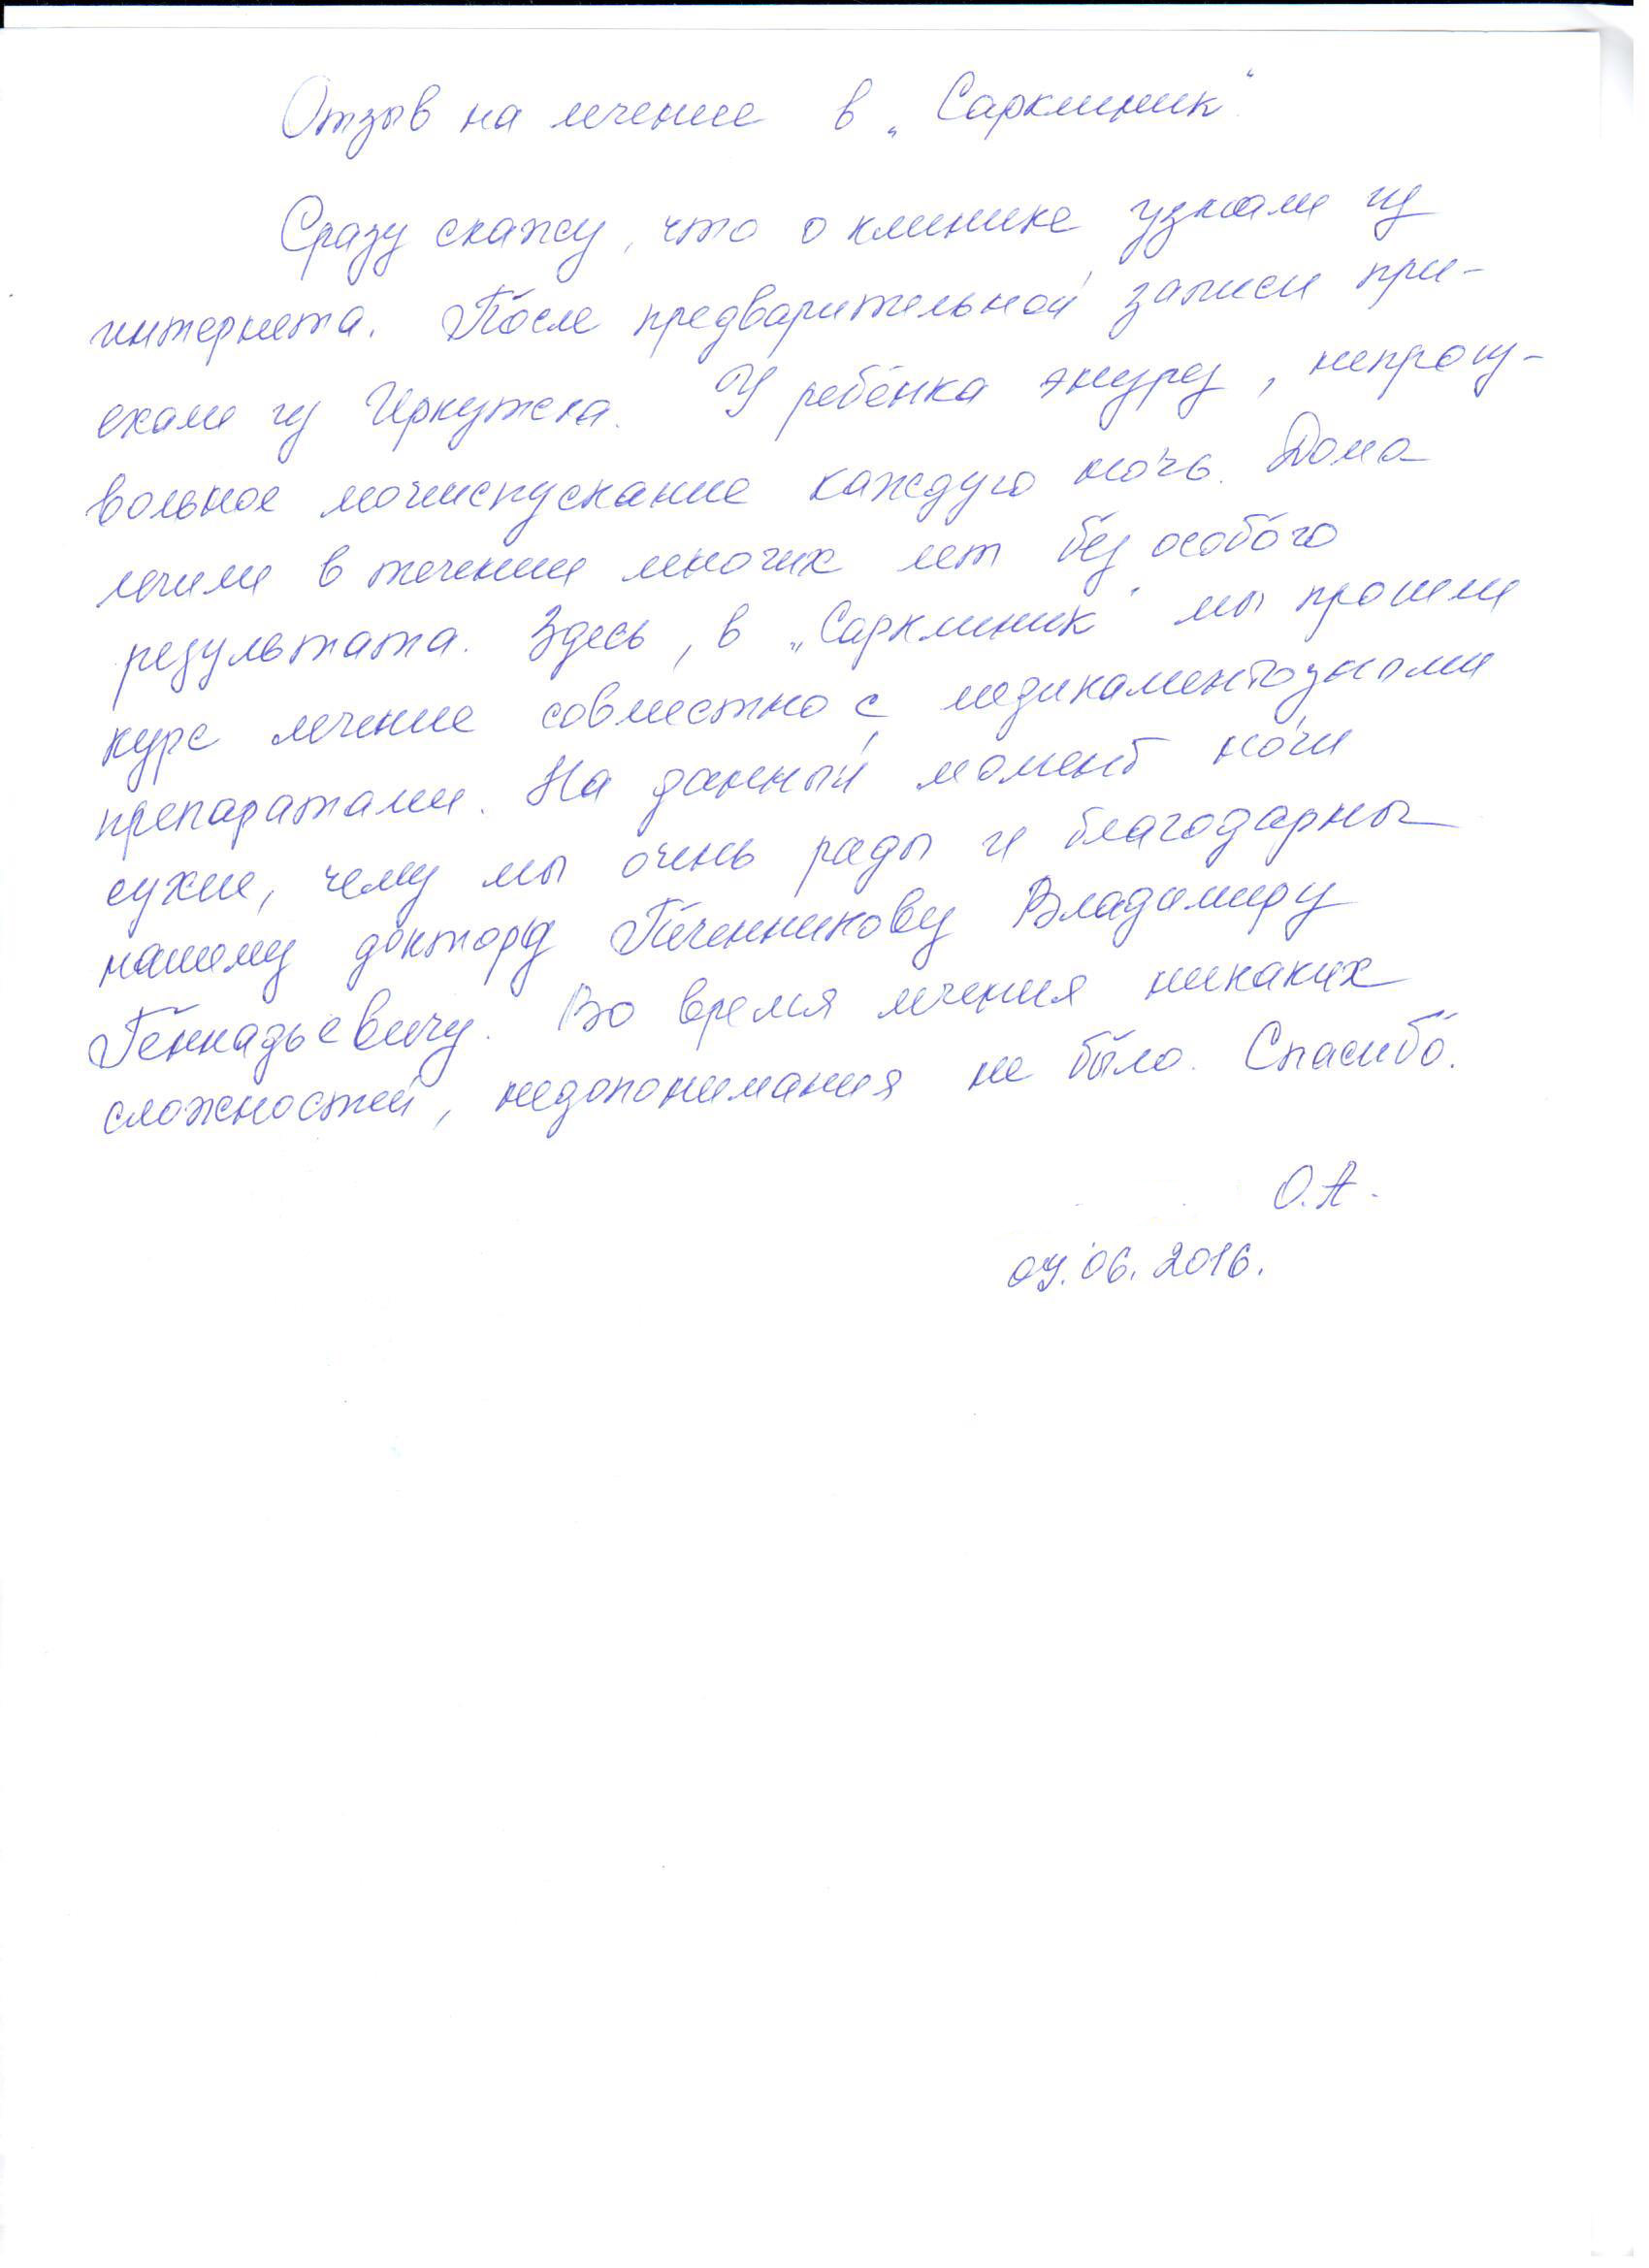 Отзыв на лечение в „Сарклиник“
Сразу скажу, что о клинике узнали из
интернета. После предварительной записи при-
ехали из Иркутска. У ребёнка энурез, непроиз-
вольное мочеиспускание каждую ночь. Дома
лечили в течении многих лет без особого
результата. Здесь, в „Сарклиник“ мы прошли
курс лечение совместно с медикаментозными
препаратами. На данный момент ночи
сухие, чему мы очень рады и благодарны
нашему доктору Печенникову Владимиру
Геннадьевичу. Во время лечения никаких
сложностей, недопонимания не было. Спасибо.
О.А.
04.06.2016.